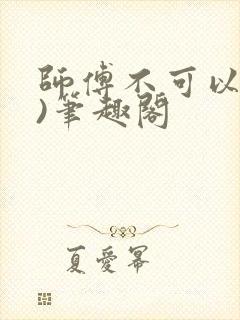 師傅不可以
)筆趣閣
夏愛冪